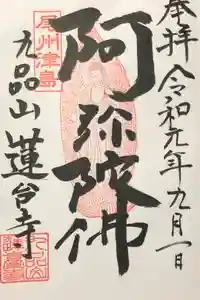 奉拝 令和元年九月一日
阿弥陀佛
尾州津島
九品山 蓮台寺